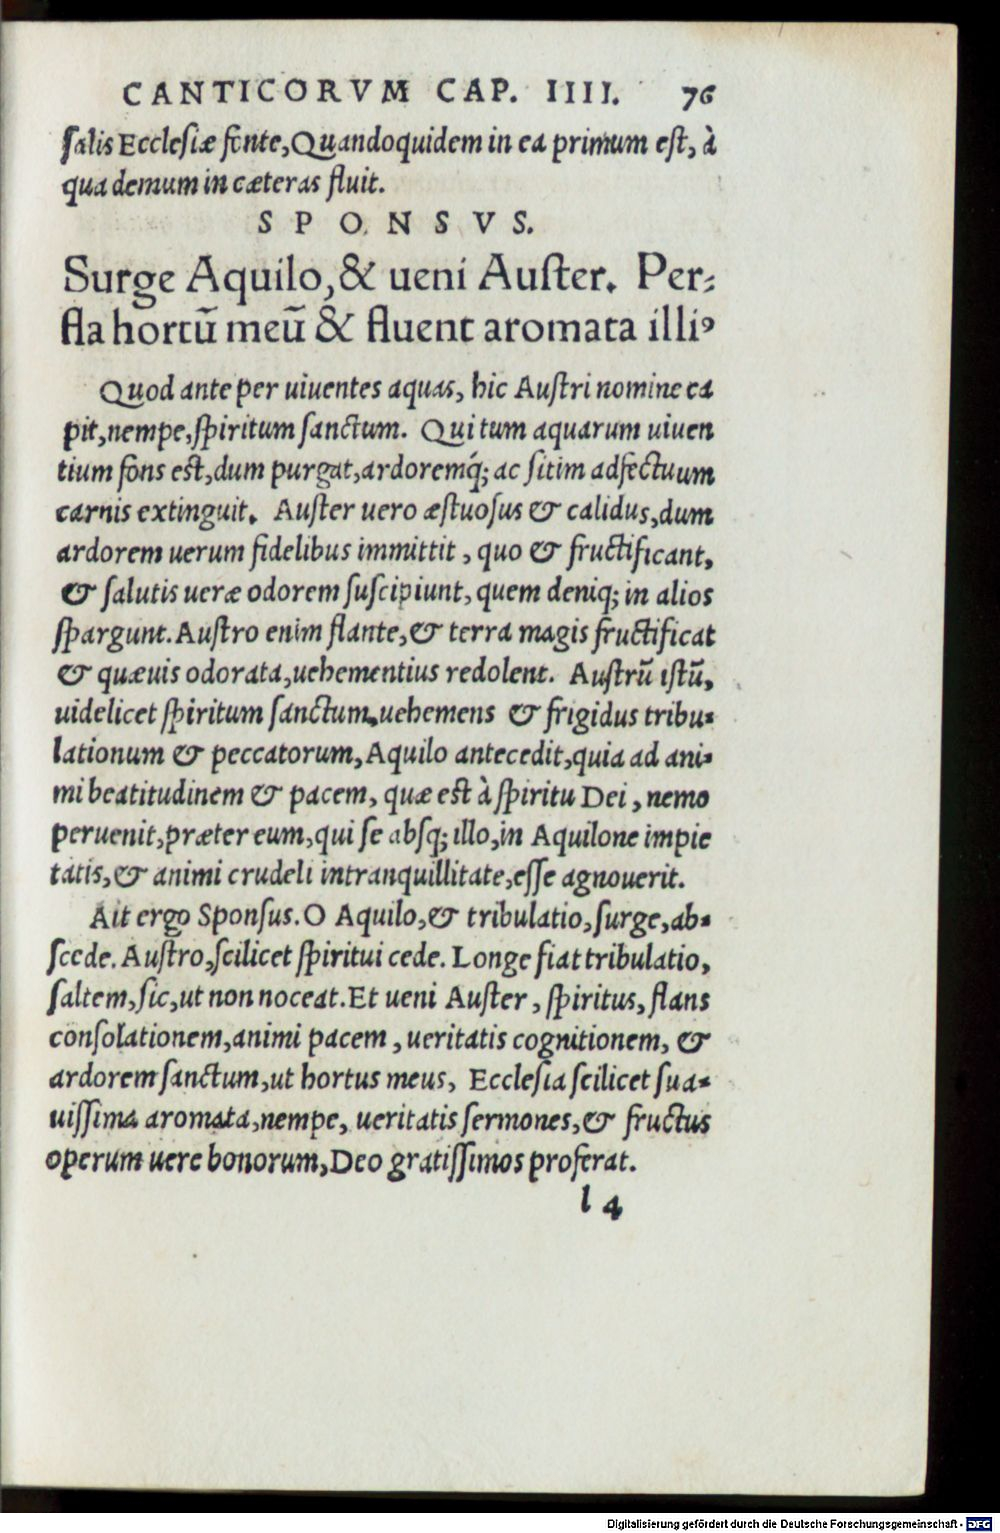 CANTICORVM CAP. IIII. 76
ſalis Eccleſiæ fonte, Quandoquidem in ea primum eſt, à
qua demum in cæteras fluit.
SPONSVS.
Surge Aquilo, & ueni Auſter. Per-
fla hortũ meũ & fluent aromata illiꝰ
Quod ante per uiuentes aquas, hic Auſtri nomine ca
pit, nempe, ſpiritum ſanctum. Qui tum aquarum uiuen
tium fons eſt, dum purgat, ardoremq́; ac ſitim adfectuum
carnis extinguit. Auſter uero æſtuoſus & calidus, dum
ardorem uerum fidelibus immittit, quo & fructificant,
& ſalutis ueræ odorem ſuſcipiunt, quem deniq; in alios
ſpargunt. Auſtro enim flante, & terra magis fructificat
& quæuis odorata, uehementius redolent. Auſtrũ iſtũ,
uidelicet ſpiritum ſanctum, uehemens & frigidus tribu-
lationum & peccatorum, Aquilo antecedit, quia ad ani-
mi beatitudinem & pacem, quæ eſt à ſpiritu Dei, nemo
peruenit, præter eum, qui ſe abſq; illo, in Aquilone impie
tatis, & animi crudeli intranquillitate, eſſe agnouerit.
Ait ergo Sponſus. O Aquilo, & tribulatio, ſurge, ab-
ſcede. Auſtro, ſcilicet ſpiritui cede. Longe fiat tribulatio,
ſaltem, ſic, ut non noceat. Et ueni Auſter, ſpiritus, flans
conſolationem, animi pacem, ueritatis cognitionem, &
ardorem ſanctum, ut hortus meus, Eccleſia ſcilicet ſua-
uiſſima aromata, nempe, ueritatis ſermones, & fructus
operum uere bonorum, Deo gratiſſimos proferat.
l 4
Digitalisierung gefördert durch die Deutsche Forschungsgemeinschaft - DFG